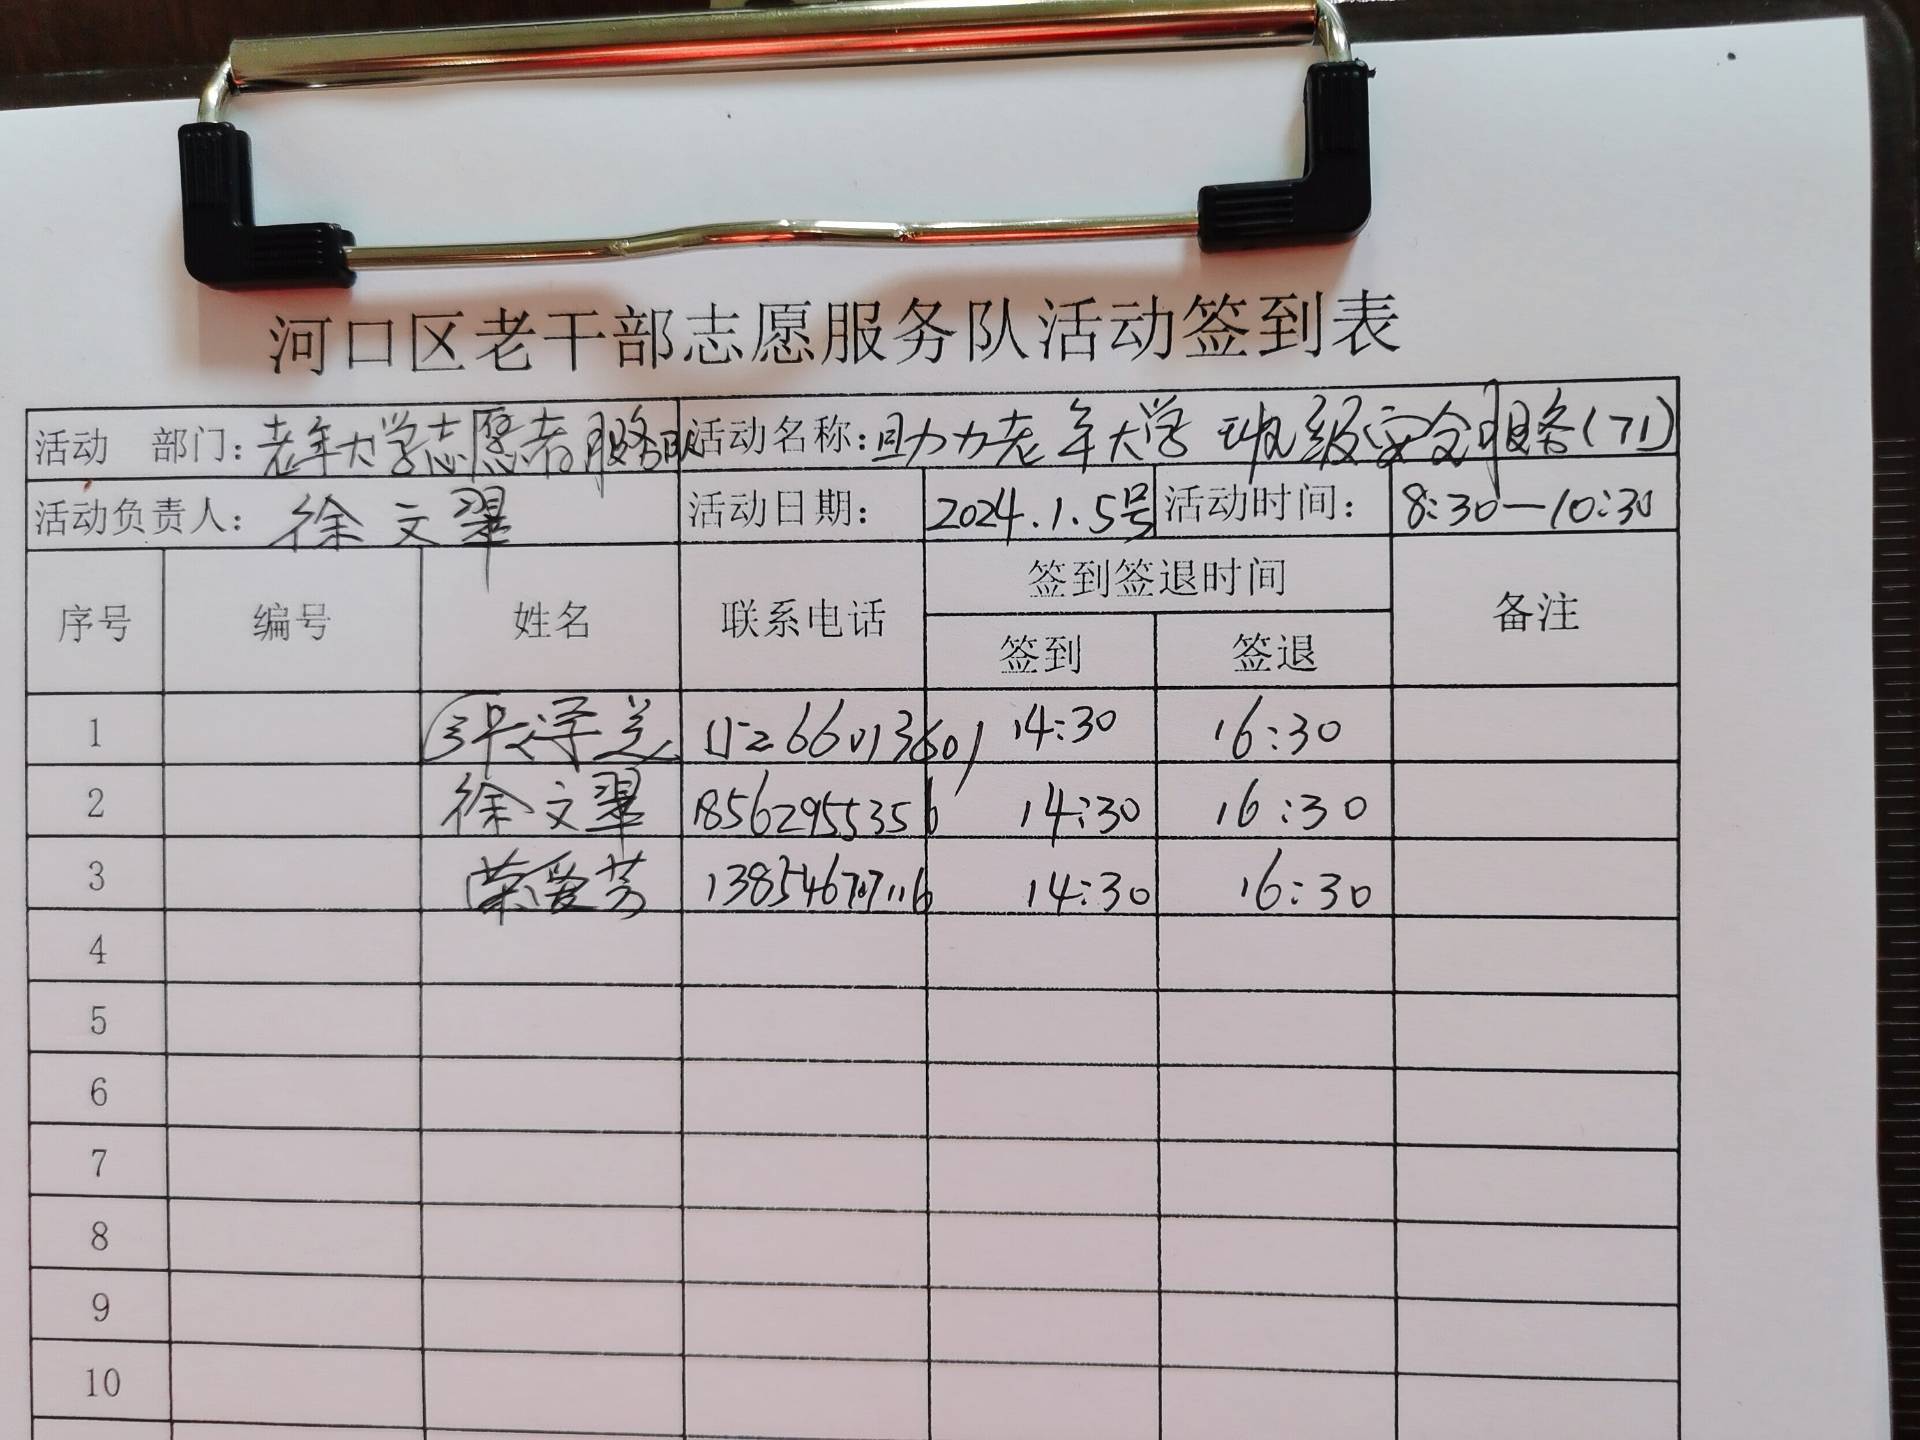 河口区老干部志愿服务队活动签到表
活动 部门：老年大学志愿者服务队 活动名称：助力老年大学班级安全服务（71）
活动负责人：徐文翠 活动日期： 2024.1.5号 活动时间： 8:30—10:30
序号 编号 姓名 联系电话 签到签退时间 备注
签到 签退
1 14:30 16:30
2 徐文翠 18562955356 14:30 16:30
3 荣爱芳 14:30 16:30
4
5
6
7
8
9
10